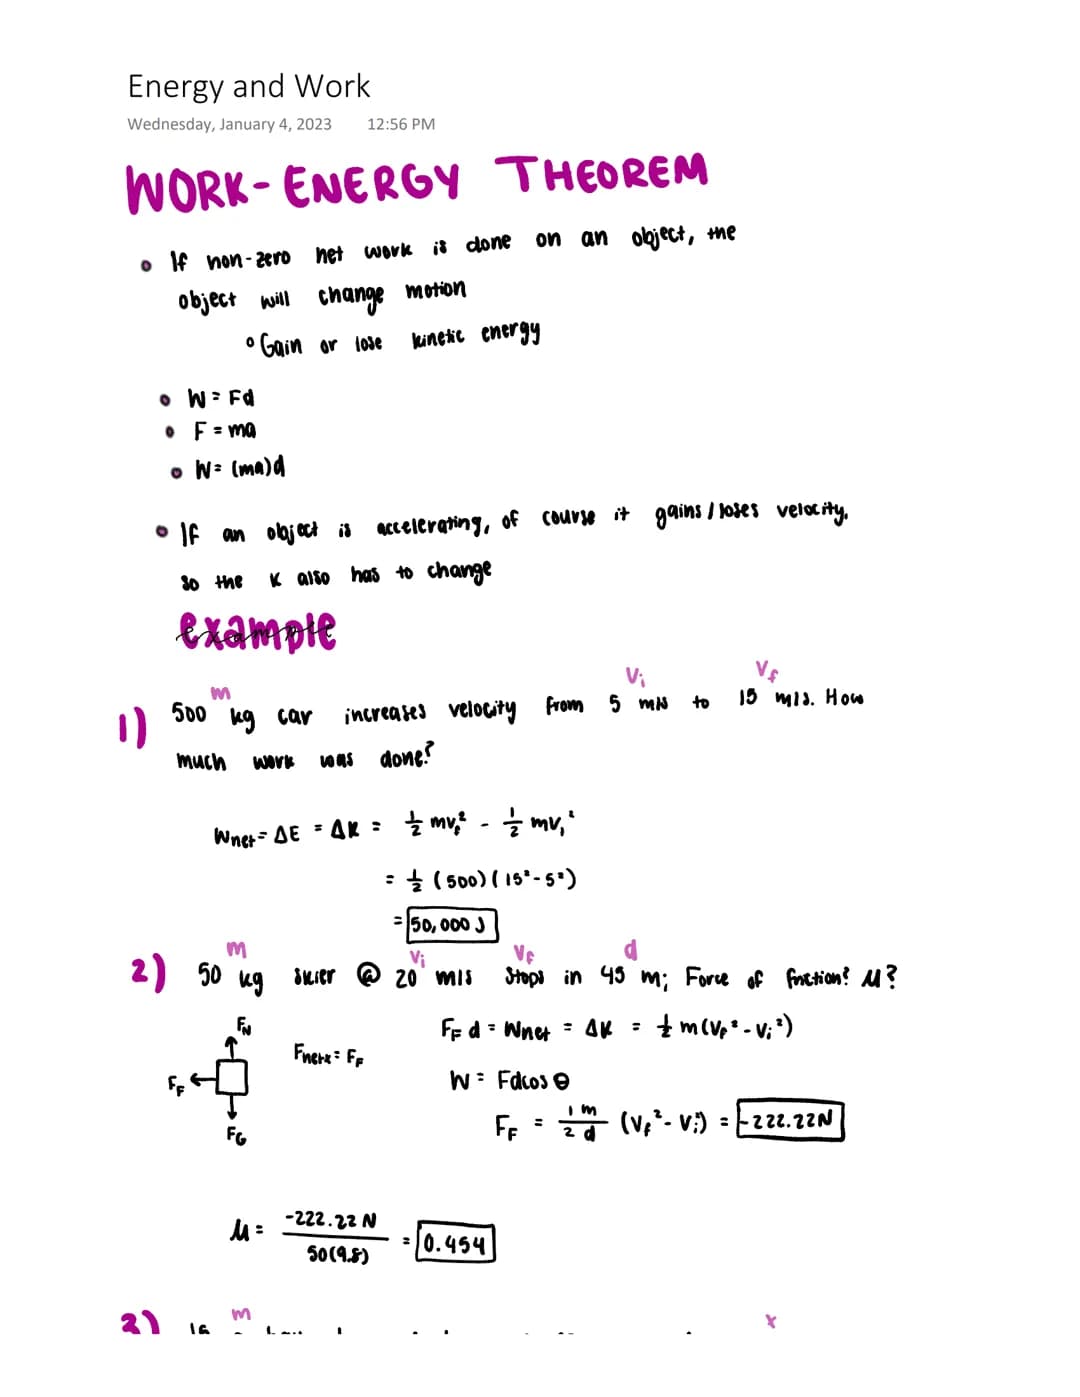 Energy and Work
Wednesday, January 4, 2023 12:56 PM
WORK-ENERGY THEOREM
• If non-zero net work is done on an object, the
object will change motion
◦ Gain or lose kinetic energy
• W = Fd
• F = ma
• W = (ma)d
• If an object is accelerating, of course it gains / loses velocity,
so the K also has to change
example
m Vi Vf
1) 500 kg car increases velocity from 5 m/s to 15 m/s. How
much work was done?
Wnet = ΔE = ΔK = 1/2 mvf² - 1/2 mvi²
= 1/2 (500)(15² - 5²)
= 50,000 J
m Vi Vf d
2) 50 kg skier @ 20 m/s stops in 45 m; Force of friction? μ?
FN
FF
FG
Fnetx = FF
FF d = Wnet = ΔK = 1/2 m(Vf² - Vi²)
W = Fdcosθ
FF = 1/2 m/d (Vf² - Vi²) = -222.22N
μ = -222.22 N / 50(9.8) = 0.454
m x
3)